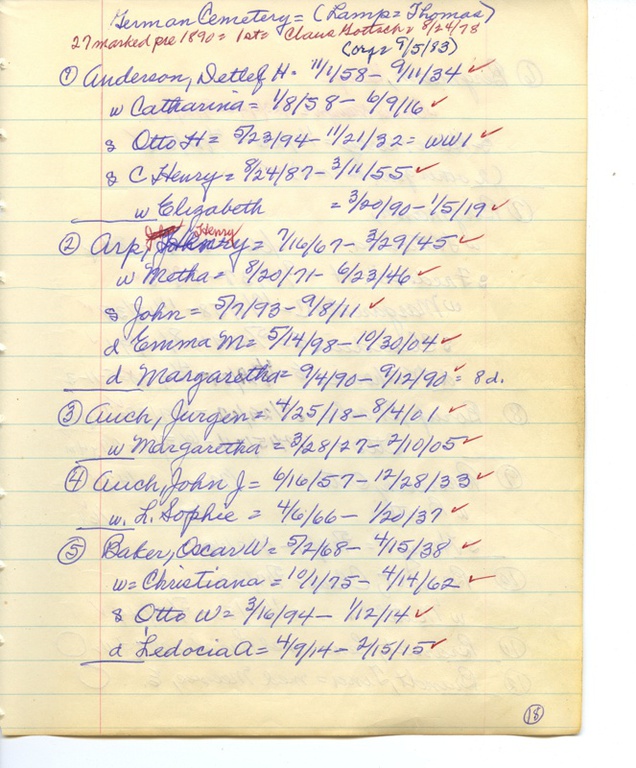 German Cemetery = (Lamp = Thomas)
27 marked pre 1890 = 1st = Claus Gottsch = 8/24/78
(Corp = 9/5/83)
① Anderson, Detlef H = 11/1/58 - 9/11/34 ✓
w Catharina = 1/8/58 - 6/9/16 ✓
s Otto H = 5/23/94 - 11/21/32 = WW1 ✓
s C Henry = 8/24/87 - 3/11/55 ✓
w Elizabeth = 3/20/90 - 1/5/19 ✓
② Arp, Henry = 7/16/67 - 3/29/45 ✓
w Metha = 8/20/71 - 6/23/46 ✓
s John = 5/7/93 - 9/8/11 ✓
d Emma M = 5/14/98 - 10/30/04 ✓
d Margaretha = 9/4/90 - 9/12/90 ✓ = 8 d.
③ Auch, Jurgen = 4/25/18 - 8/4/01 ✓
w Margaretha = 3/28/27 - 2/10/05 ✓
④ Auch, John J = 6/16/57 - 12/28/33 ✓
w. L. Sophie = 4/6/66 - 1/20/37 ✓
⑤ Baker, Oscar W = 5/2/68 - 4/15/38 ✓
w = Christiana = 10/1/75 - 4/14/62 ✓
s Otto W = 3/16/94 - 1/12/14 ✓
d Ledocia A = 4/9/14 - 2/15/15 ✓
⑱